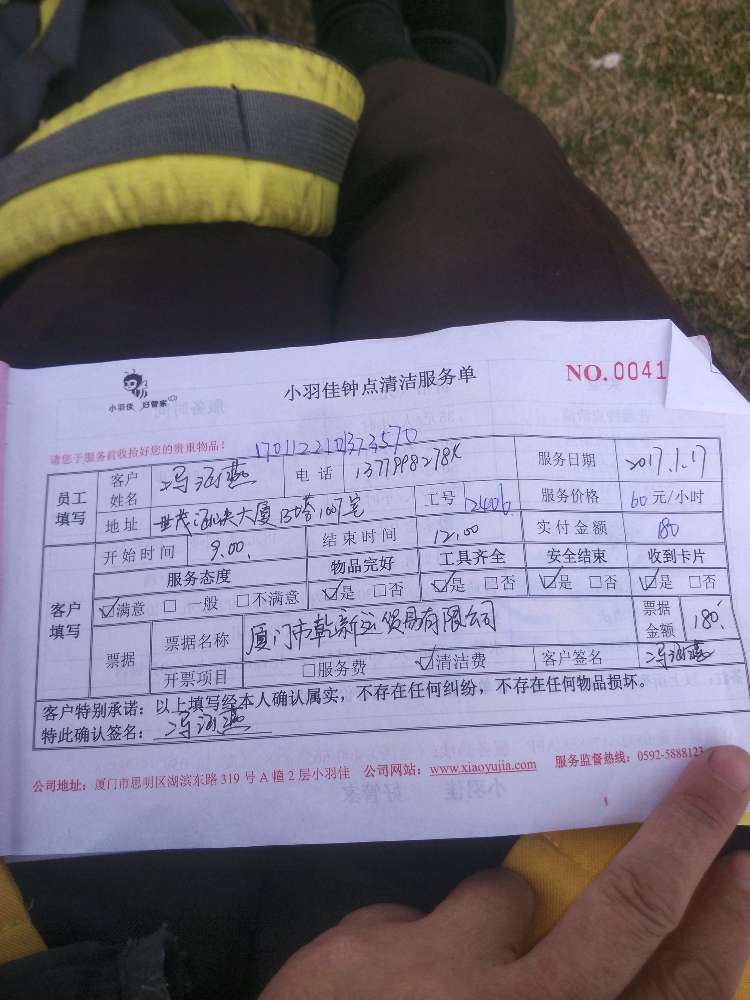 小羽佳 好管家
小羽佳钟点清洁服务单
NO.0041
请您于服务前收拾好您的贵重物品!
170112210373570
员工填写 客户姓名 冯涵燕 电话 服务日期 2017.1.17
地址 大厦 工号 12406 服务价格 60元/小时
客户填写 开始时间 9.00. 结束时间 12.00 实付金额 180
服务态度 物品完好 工具齐全 安全结束 收到卡片
☑满意 □一般 □不满意 ☑是 □否 ☑是 □否 ☑是 □否 ☑是 □否
票据 票据名称 厦门市乾新运贸易有限公司 票据金额 180.
开票项目 □服务费 ☑清洁费 客户签名 冯涵燕
客户特别承诺:以上填写经本人确认属实,不存在任何纠纷,不存在任何物品损坏。
特此确认签名: 冯涵燕
公司地址:厦门市思明区湖滨东路 319 号 A 幢 2 层小羽佳 公司网站:www.xiaoyujia.com 服务监督热线:0592-5888123